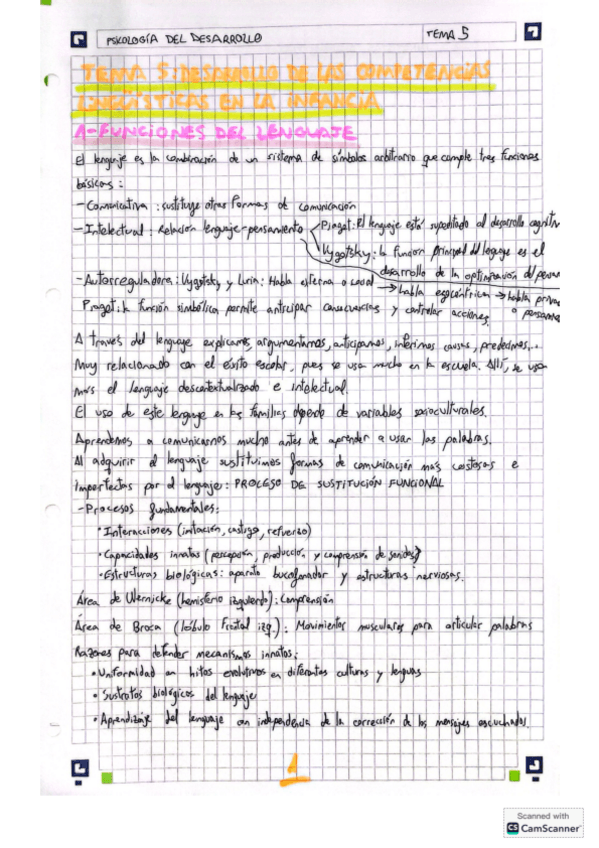 PSICOLOGÍA DEL DESARROLLO
TEMA 5
TEMA 5: DESARROLLO DE LAS COMPETENCIAS
LINGÜÍSTICAS EN LA INFANCIA
1-FUNCIONES DEL LENGUAJE
El lenguaje es la combinación de un sistema de símbolos arbitrario que cumple tres funciones
básicas:
-Comunicativa: sustituye otras formas de comunicación
-Intelectual: Relación lenguaje-pensamiento
Piaget: El lenguaje está supeditado al desarrollo cognitiv
Vygotsky: la función principal del lenguaje es el
desarrollo de la optimización del pensam
-Autorreguladora: Vygotsky y Luria: Habla externa o social → habla egocéntrica → habla priva
o pensamie
Piaget: la función simbólica permite anticipar consecuencias y controlar acciones.
A través del lenguaje explicamos, argumentamos, anticipamos, inferimos causas, predecimos...
Muy relacionado con el éxito escolar, pues se usa mucho en la escuela. Allí, se usa
más el lenguaje descontextualizado e intelectual.
El uso de este lenguaje en las familias depende de variables socioculturales.
Aprendemos a comunicarnos mucho antes de aprender a usar las palabras.
Al adquirir el lenguaje sustituimos formas de comunicación más costosas e
imperfectas por el lenguaje: PROCESO DE SUSTITUCIÓN FUNCIONAL
-Procesos fundamentales:
• Interacciones (imitación, castigo, refuerzo)
• Capacidades innatas (percepción, producción y comprensión de sonidos)
• Estructuras biológicas: aparato bucofonador y estructuras nerviosas.
Área de Wernicke (hemisferio izquierdo): Comprensión
Área de Broca (lóbulo frontal izq.): Movimientos musculares para articular palabras
Razones para defender mecanismos innatos:
• Uniformidad en hitos evolutivos en diferentes culturas y lenguas
• Sustratos biológicos del lenguaje
• Aprendizaje del lenguaje con independencia de la corrección de los mensajes escuchados.
1
Scanned with
CS CamScanner